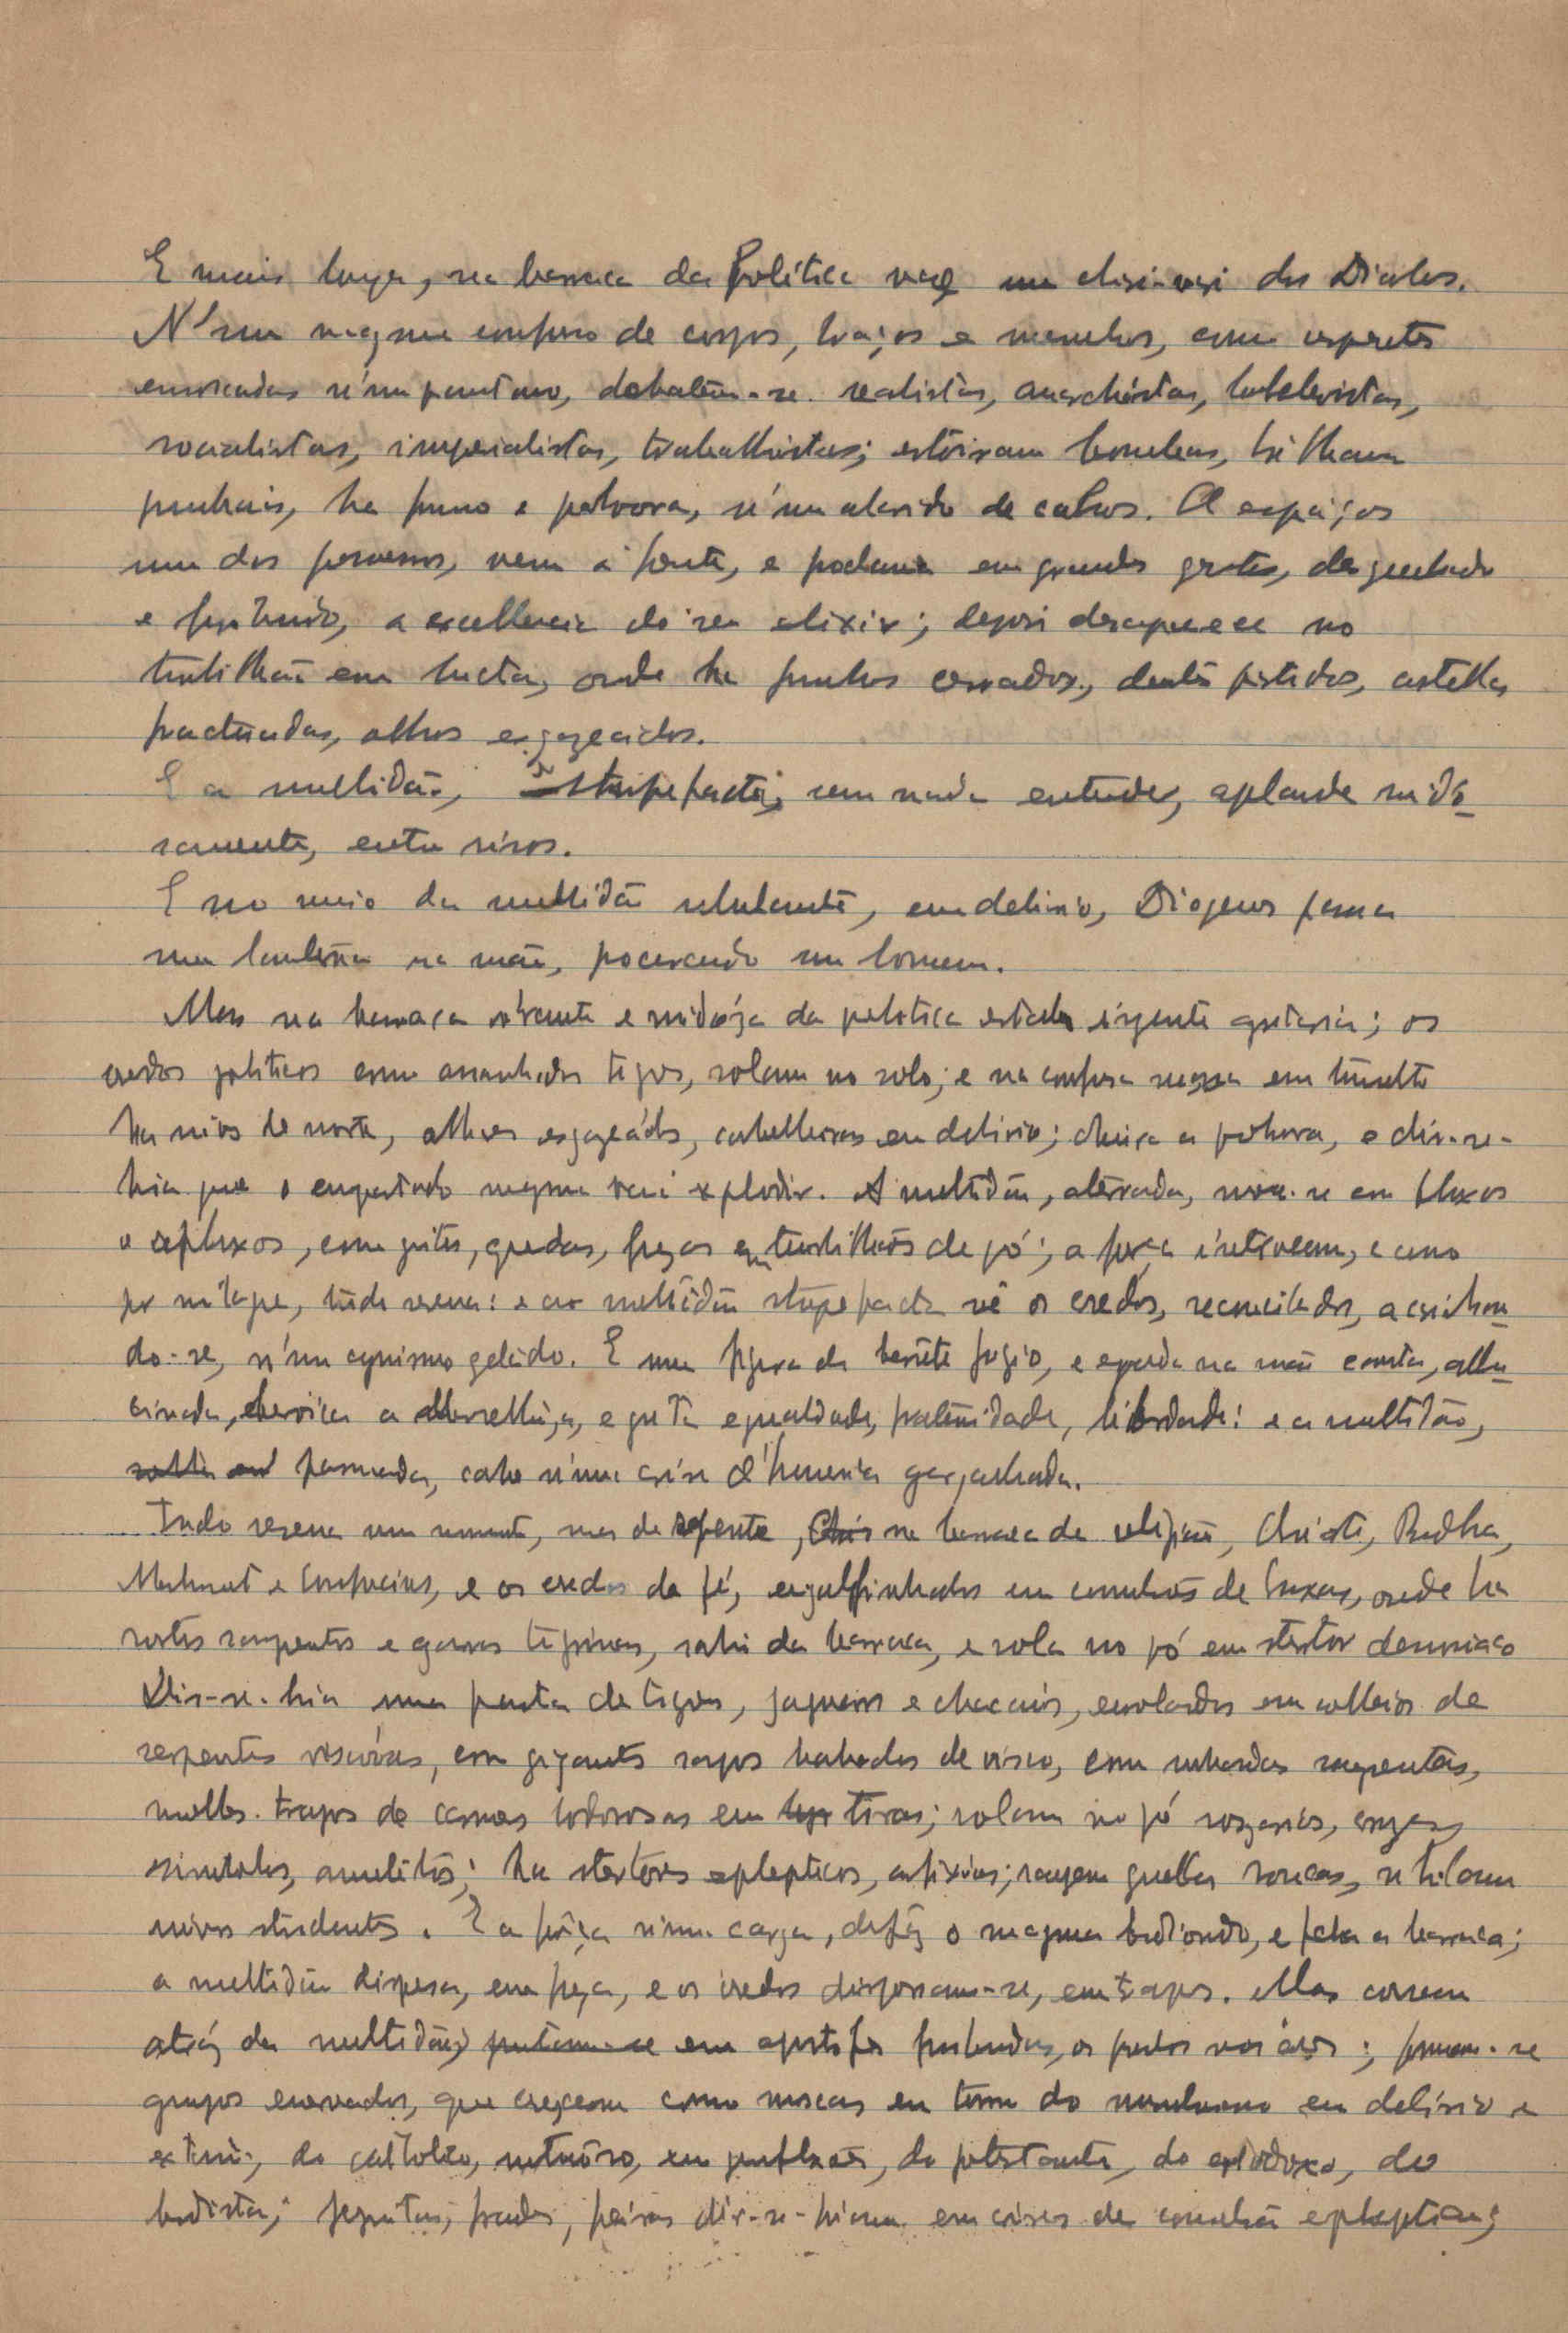 E mais longe, na barraca da Política vae um charivari dos Diabos.
N'um magma confuso de corpos, braços e membros, como serpentes
enroscadas n'um pantano, debatem-se realistas, anarchistas, bolchevistas,
socialistas, imperialistas, trabalhistas; estoiram bombas, brilham
punhais, ha fumo e polvora, n'um alarido de cabos. A espaços
um dos perversos, vem á frente, e proclama em grandes gestos, desgrenhado
e , a excellencia do seu elixir; depois desapparece no
turbilhão em lucta, onde ha punhos cerrados, dentes partidos, costellas
fracturadas, olhos esgazeados.
E a multidão, stupefacta, sem nada entender, aplaude ruido-
samente, entre risos.
E no meio da multidão ululante, em delirio, Diogenes passa
uma lanterna na mão, procurando um homem.
Mas na barraca e ruidosa da politica estala ingente gritaria; os
credos politicos como assanhados tigres, rolam no solo; e na confusa massa em tumulto
ha uivos de morte, olhares esgazeados, cabelleiras em delirio; cheira a polvora, e dir-se-
hia que o empastado magma vai explodir. A multidão, aterrada, move-se em fluxos
e refluxos, com gritos, quedas, fugas em turbilhões de pó; a força intervem, e como
por milagre, tudo serena: e a multidão stupefacta vê os credos, reconciliados, acarinhan-
do-se, n'um cynismo gelado. E uma figura de barrete frigio, e espada na mão canta, allu-
cinada, a Marselheza, e grita egualdade, fraternidade, liberdade! e a multidão,
pasmada, cahe n'uma crise d'homerica gargalhada.
Tudo serena um momento, mas de repente, na barraca da religião, Christo, Budha,
Mahomet e Confucius, e os credos da fé, engalfinhados em comunhões de bruxas, onde ha
rostos sangrentos e garras tigrinas, sahe da barraca, e rola no pó em stertor demoniaco
Dir-se-hia uma de tigres, jaguares e chacais, enrolados em colleios de
serpentes viscosas, com gigantes sapos babados de visco, com sangrentas,
molles trapos de carnes lodorosas em tiras; rolam no pó rosarios, cruzes,
symbolos, amuletos; ha stertores eplepticos, asfixias; rangem guellas roucas, sibilam
uivos stridentes. E a fôrça n'uma carga, desfaz o magma hediondo, e fecha a barraca;
a multidão dispersa, em fuga, e os credos dispersam-se, em trapos. Mas correm
atrás da multidão, em apostrofes, os punhos nos áres; formam-se
grupos enervados, que crescem como moscas em torno do musulmano em delirio e
, do catholico, untuoso, em genuflexões, do protestante, do ortodoxo, do
budista; jesuitas, frades, freiras dir-se-hiam em crises de comunhão epleptica;